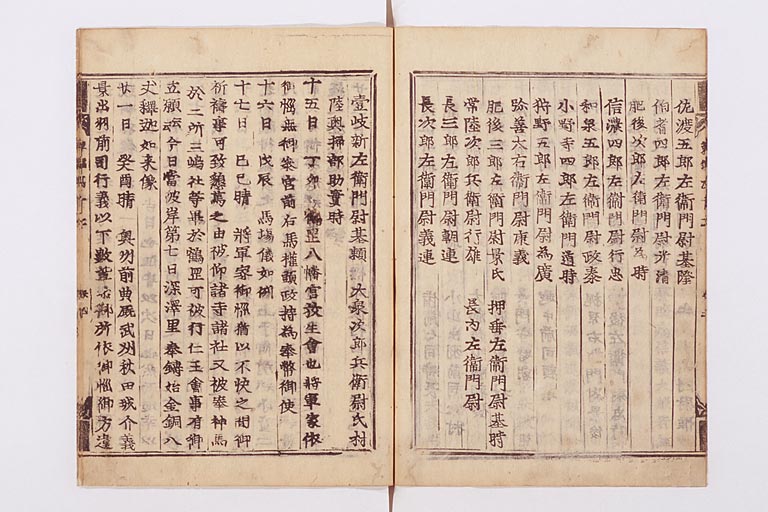 佐渡五郎左衛門尉基隆
伯耆四郎左衛門尉光清
肥後次郎左衛門尉為時
信濃四郎左衛門尉行忠
和泉五郎左衛門尉政泰
小野寺四郎左衛門通時
狩野五郎左衛門尉為廣
弥善太右衛門尉康義
肥後三郎左衛門尉景氏 押垂左衛門尉基時
常陸次郎兵衛尉行雄 長内左衛門尉
長三郎左衛門尉朝連
長次郎左衛門尉義連
壹岐新左衛門尉基頼 大泉次郎兵衛尉氏村
陸奥掃部助實時
十五日 丁卯 鶴罡八幡宮放生會也將軍家依
御惱無御參宮前右馬權頭政持為奉幣御使
十六日 戊辰 馬場儀如例
十七日 己巳晴 將軍家御惱猶以不快之間御
祈禱事可致懇篤之由被仰諸寺諸社又被奉神馬
於二所三嶋社等畢於鶴罡可被行仁王會事有御
立願云今日當彼岸第七日深澤里奉鑄始金銅八
丈釋迦如来像
廿一日 癸酉晴 奥州前典厩武州秋田城介義
景出羽前司行義以下數輩 御所依御惱御方違